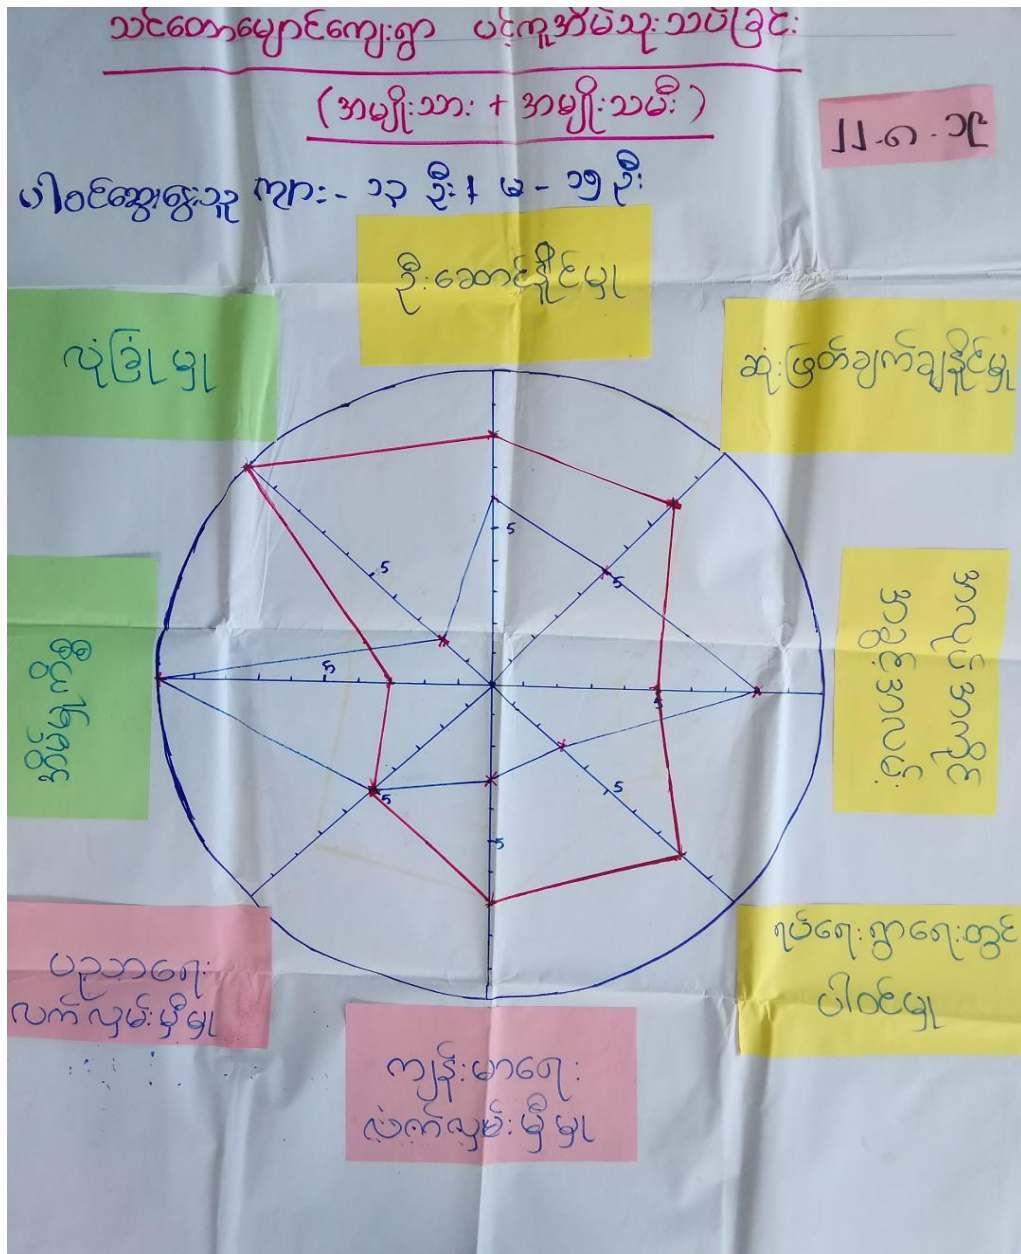 သင်တောမျောင်ကျေးရွာ ပင့်ကူအိမ်သုံးသပ်ခြင်း
(အမျိုးသား + အမျိုးသမီး)
၂၂-၈-၁၉
ပါဝင်ဆွေးနွေးသူ ကျား - ၁၃ ဦး + မ - ၁၅ ဦး
ဦးဆောင်နိုင်မှု
လုံခြုံမှု
ဆုံးဖြတ်ချက်ချနိုင်မှု
5
5
5
အလုပ်အကိုင်
အခွင့်အလမ်း
အိမ်မှုကိစ္စ
5
5
5
5
5
ရပ်ရေးရွာရေးတွင်
ပါဝင်မှု
ပညာရေး
လက်လှမ်းမှီမှု
ကျန်းမာရေး
လက်လှမ်းမှီမှု